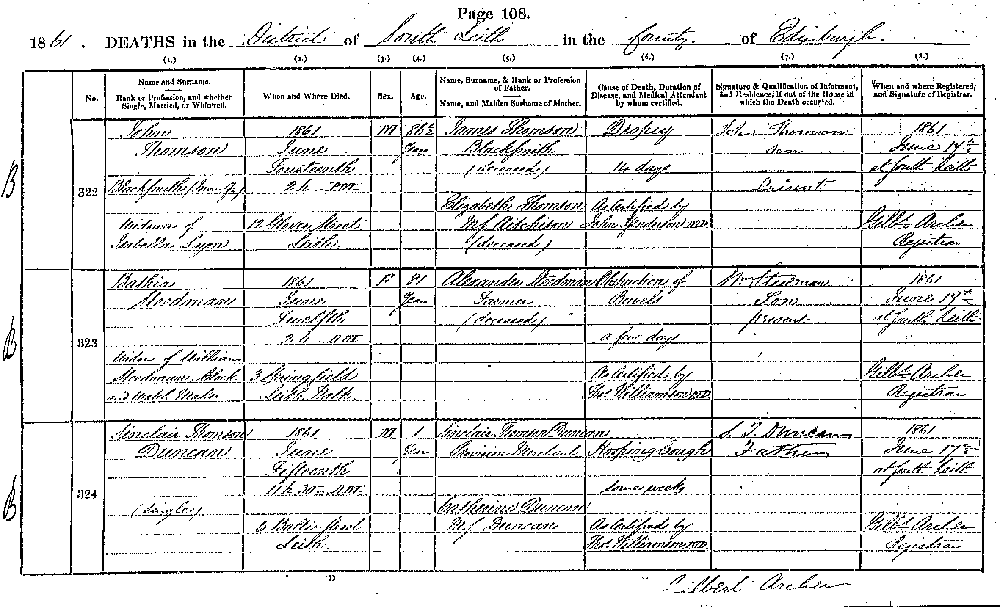 Page 108.
1861. DEATHS in the District of South Leith in the County of Edinburgh.
(1.) (2.) (3.) (4.) (5.) (6.) (7.) (8.)
No.
Name and Surname.
Rank or Profession, and whether Single, Married, or Widowed.
When and Where Died.
Sex.
Age.
Name, Surname, & Rank or Profession of Father.
Name, and Maiden Surname of Mother.
Cause of Death, Duration of Disease, and Medical Attendant by whom certified.
Signature & Qualification of Informant, and Residence, if out of the House in which the Death occurred.
When and where Registered, and Signature of Registrar.
B
322
John
Thomson
Blacksmith
Widower of
Isabella Lyon
1861
June
Fourteenth
2 h PM
Leith
M
Years
James Thomson
Blacksmith
(deceased)
Elizabeth Thomson
M.S. Aitchison
(deceased)
Dropsy
14 days
As Certified by
John Henderson MD
John Thomson
Son
Present
1861
June 17th
at South Leith
Gilbt Archer
Registrar
B
323
Bathia
Stedman
Widow of William
Stedman
1861
June
Twelfth
2 h AM
3 Springfield
Leith Walk
F
81
Years
Alexander Stedman
Farmer
(deceased)
Obstruction of
Bowels
a few days
As Certified by
Thos Williamson MD
Wm Stedman
Son
present
1861
June 17th
at South Leith
Gilbt Archer
Registrar
B
324
Sinclair Thomson
Duncan
(Single)
1861
June
Fifteenth
11 h 30 m AM
Baltic Street
Leith
M
1
Year
Sinclair Thomson Duncan
Provision Merchant
Catherine Duncan
M.S. Duncan
Hooping Cough
some weeks
As Certified by
Thos Williamson MD
S. T. Duncan
Father
1861
June 17th
at South Leith
Gilbt Archer
Registrar
Gilbert Archer